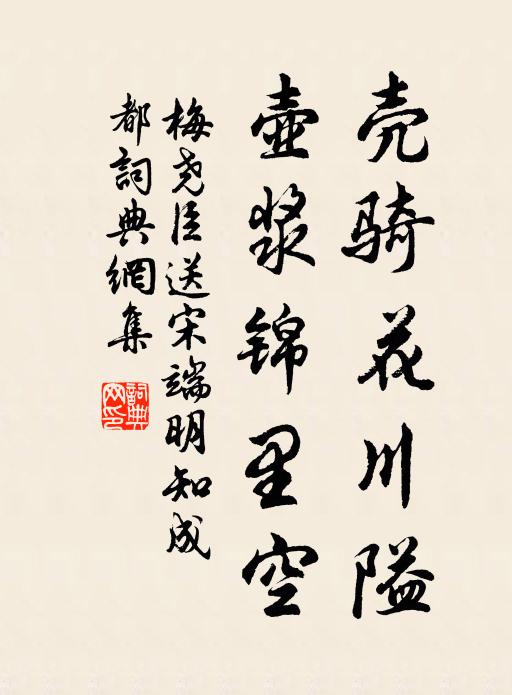 壳骑花川隘
壶浆锦里空
梅尧臣送宋端明知成
都詞典網集
詞典網印